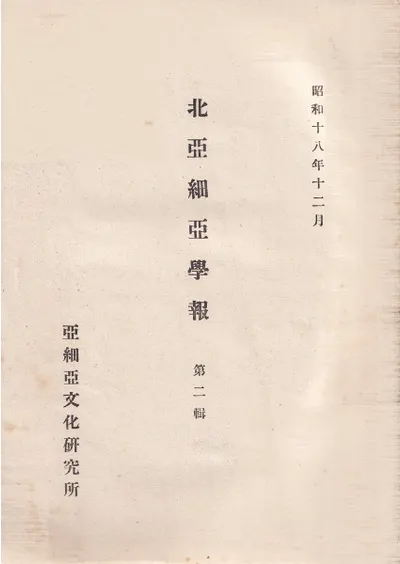 昭和十八年十二月
北亞細亞學報 第二輯
亞細亞文化研究所